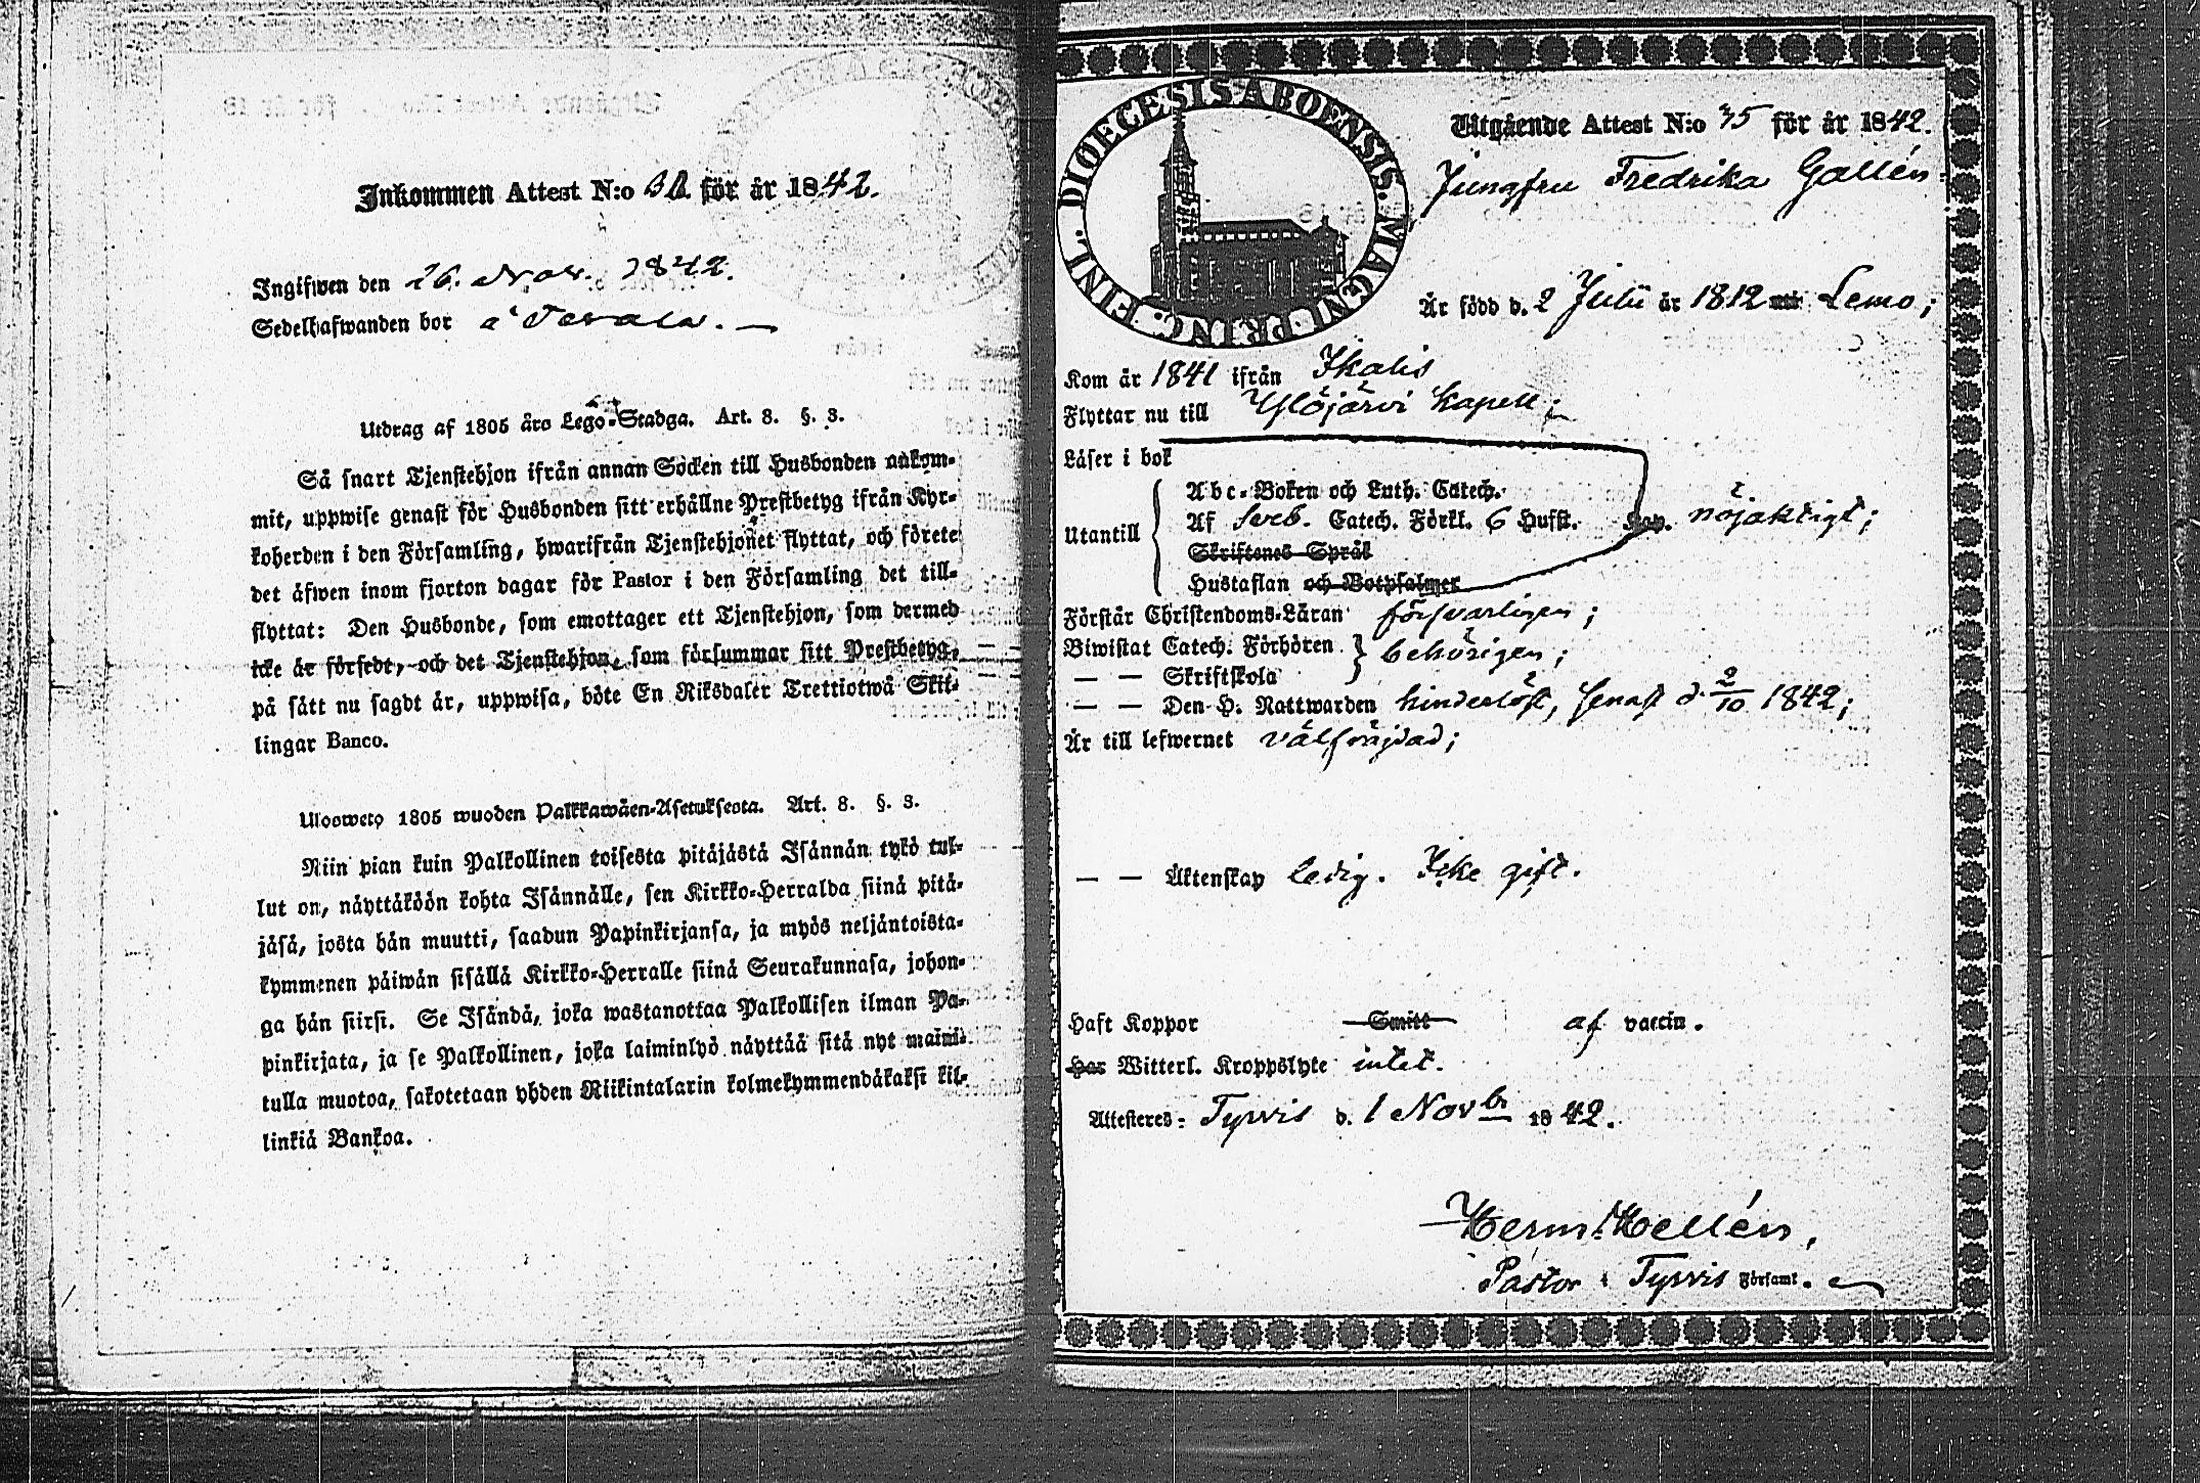 Inkommen Attest N:o 32 för år 1842.
Ingifwen den 26. Nov. 1842.
Sedelhafwanden bor å
Utdrag af 1805 års Lego-Stadga. Art. 8. §. 3.
Så snart Tjenstehjon ifrån annan Socken till Husbonden ankom-
mit, uppwise genast för Husbonden sitt erhållne Prestbetyg ifrån Kyr-
koherden i den Församling, hwarifrån Tjenstehjonet flyttat, och förete
det äfwen inom fjorton dagar för Pastor i den Församling det till-
flyttat: Den Husbonde, som emottager ett Tjenstehjon, som dermed
icke är försedt, och det Tjenstehjon, som försummar sitt Prestbetyg,
på sätt nu sagdt är, uppwisa, böte En Riksdaler Trettiotwå Skil-
lingar Banco.
Ulosweto 1805 wuoden Palkkawäen-Asetuksesta. Art. 8. §. 3.
Niin pian kuin Palkollinen toisesta pitäjästä Isännän tykö tul-
lut on, näyttäköön kohta Isännälle, sen Kirkko-Herralda siinä pitä-
jäsä, josta hän muutti, saadun Papinkirjansa, ja myös neljäntoista-
kymmenen päiwän sisällä Kirkko-Herralle siinä Seurakunnasa, johon-
ga hän siirsi. Se Isändä, joka wastanottaa Palkollisen ilman Pa-
pinkirjata, ja se Palkollinen, joka laiminlyö näyttää sitä nyt maini-
tulla muotoa, sakotetaan yhden Riikintalarin kolmekymmendäkaksi kil-
linkiä Bankoa.
DIOECESIS ABOENSIS. MAGN. PRINC. FINL.
Utgående Attest N:o 75 för år 1842.
Jungfru Fredrika Gallén
Är född d. 2 Julii år 1812 Lemo;
Kom år 1841 ifrån Ikalis
Flyttar nu till Ylöjärvi Kapell;
Läser i bok
Utantill
Abc-Boken och Luth. Catech.
Af Sveb. Catech. Förkl. 6 Hufst. Kap. nöjaktigt;
Skriftenes Språk
Hustaflan och Botpsalmer
Förstår Christendoms-Läran försvarligen;
Biwistat Catech. Förhören behörigen;
— — Skriftskola
— — Den H. Nattwarden hinderlöst, senast d. 2/10 1842;
Är till lefwernet välfräjdad;
— — Äktenskap Ledig. Icke gift.
Haft Koppor Smitt af vaccin.
Har Witterl. Kroppslyte intet.
Attesteres: Tyrvis d. 1 Novbr 1842.
Herm: Hellén,
Pastor i Tyrvis Församl.